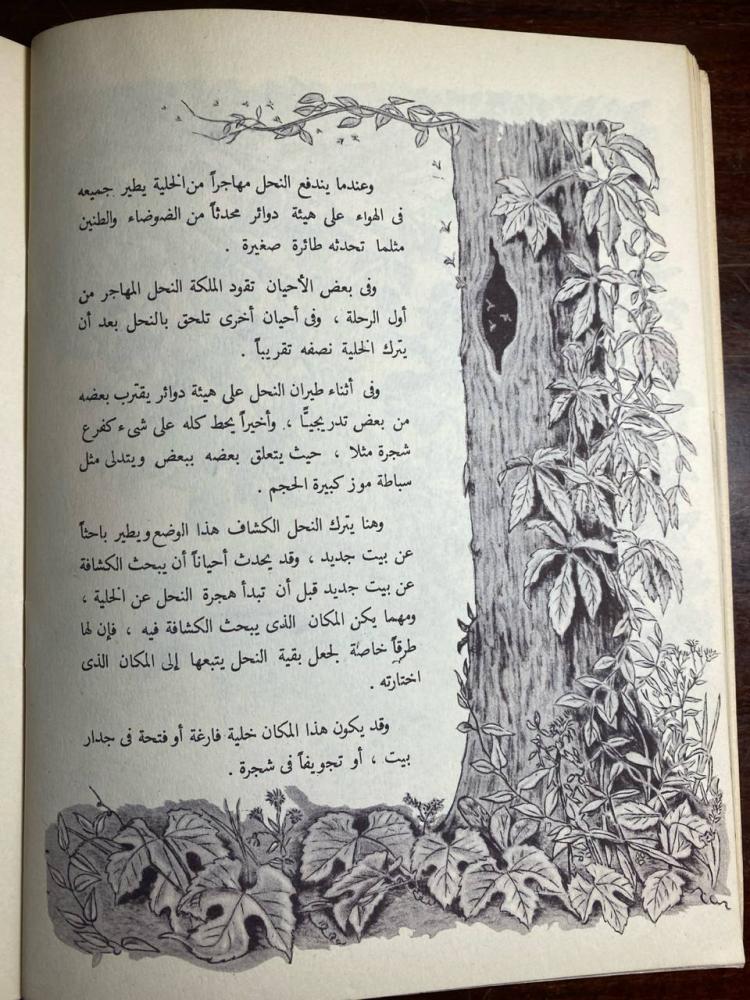 وعندما يندفع النحل مهاجراً من الخلية يطير جميعه
فى الهواء على هيئة دوائر محدثاً من الضوضاء والطنين
مثلما تحدثه طائرة صغيرة .
وفى بعض الأحيان تقود الملكة النحل المهاجر من
أول الرحلة ، وفى أحيان أخرى تلحق بالنحل بعد أن
يترك الخلية نصفه تقريباً .
وفى أثناء طيران النحل على هيئة دوائر يقترب بعضه
من بعض تدريجيًّا ، وأخيراً يحط كله على شىء كفرع
شجرة مثلا ، حيث يتعلق بعضه ببعض ويتدلى مثل
سباطة موز كبيرة الحجم .
وهنا يترك النحل الكشاف هذا الوضع ويطير باحثاً
عن بيت جديد ، وقد يحدث أحياناً أن يبحث الكشافة
عن بيت جديد قبل أن تبدأ هجرة النحل عن الخلية ،
ومهما يكن المكان الذى يبحث الكشافة فيه ، فإن لها
طرقاً خاصة لجعل بقية النحل يتبعها إلى المكان الذى
اختارته .
وقد يكون هذا المكان خلية فارغة أو فتحة فى جدار
بيت ، أو تجويفاً فى شجرة .